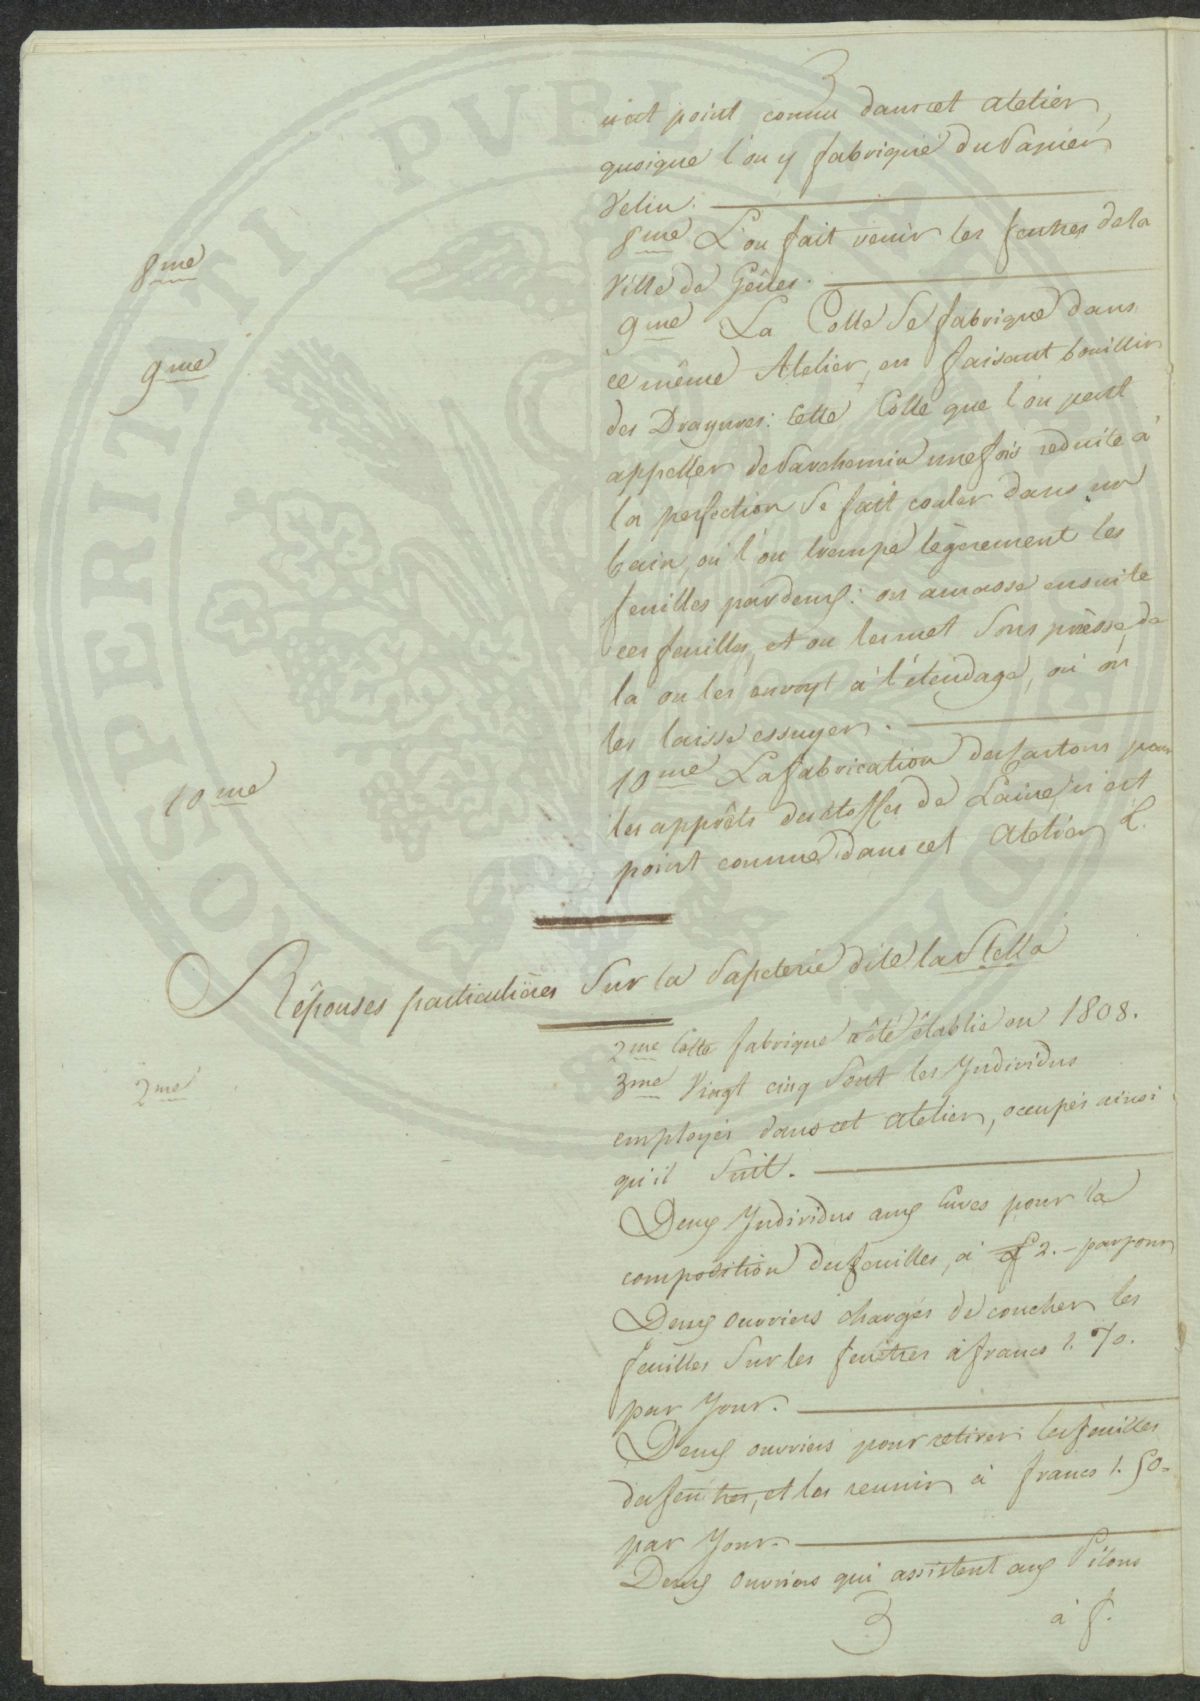 3
n'est point connu dans cet atelier,
quoique l'on y fabrique du Papier
Velin.
8me
8me L'on fait venir les feutres de la
Ville de Gênes.
9me
9me La Colle se fabrique dans
ce même Atelier, en faisant bouillir
des Drayures: Cette Colle que l'on peut
appeller de Parchemin une fois reduite à
la perfection se fait couler dans un
bain, où l'on trempe légèrement les
feuilles par deux: on amasse ensuite
ces feuilles, et on les met sous prèsse, de
la on les envoyt à l'étendage, où on
les laisse essuyer.
10me
10me La fabrication des Cartons pour
les apprêts des étoffes de Laine, n'est
point connue dans cet Atelier &.
Réponses particulières sur la Papeterie dite la Stella
2me Cette fabrique a été établie en 1808.
2me
3me Vingt cinq sont les Individus
employés dans cet atelier, occupés ainsi
qu'il suit.
Deux Individus aux Cuves pour la
composition des feuilles, à f 2.- par jour
Deux ouvriers chargés de coucher les
feuilles sur les feutres à francs 1. 70.
par Jour.
Deux ouvriers pour retirer les feuilles
des feutres, et les reunir à francs 1. 50.
par Jour.
Deux ouvriers qui assistent aux Pilons
3
à f.
PROSPERITATI PVBLICAE